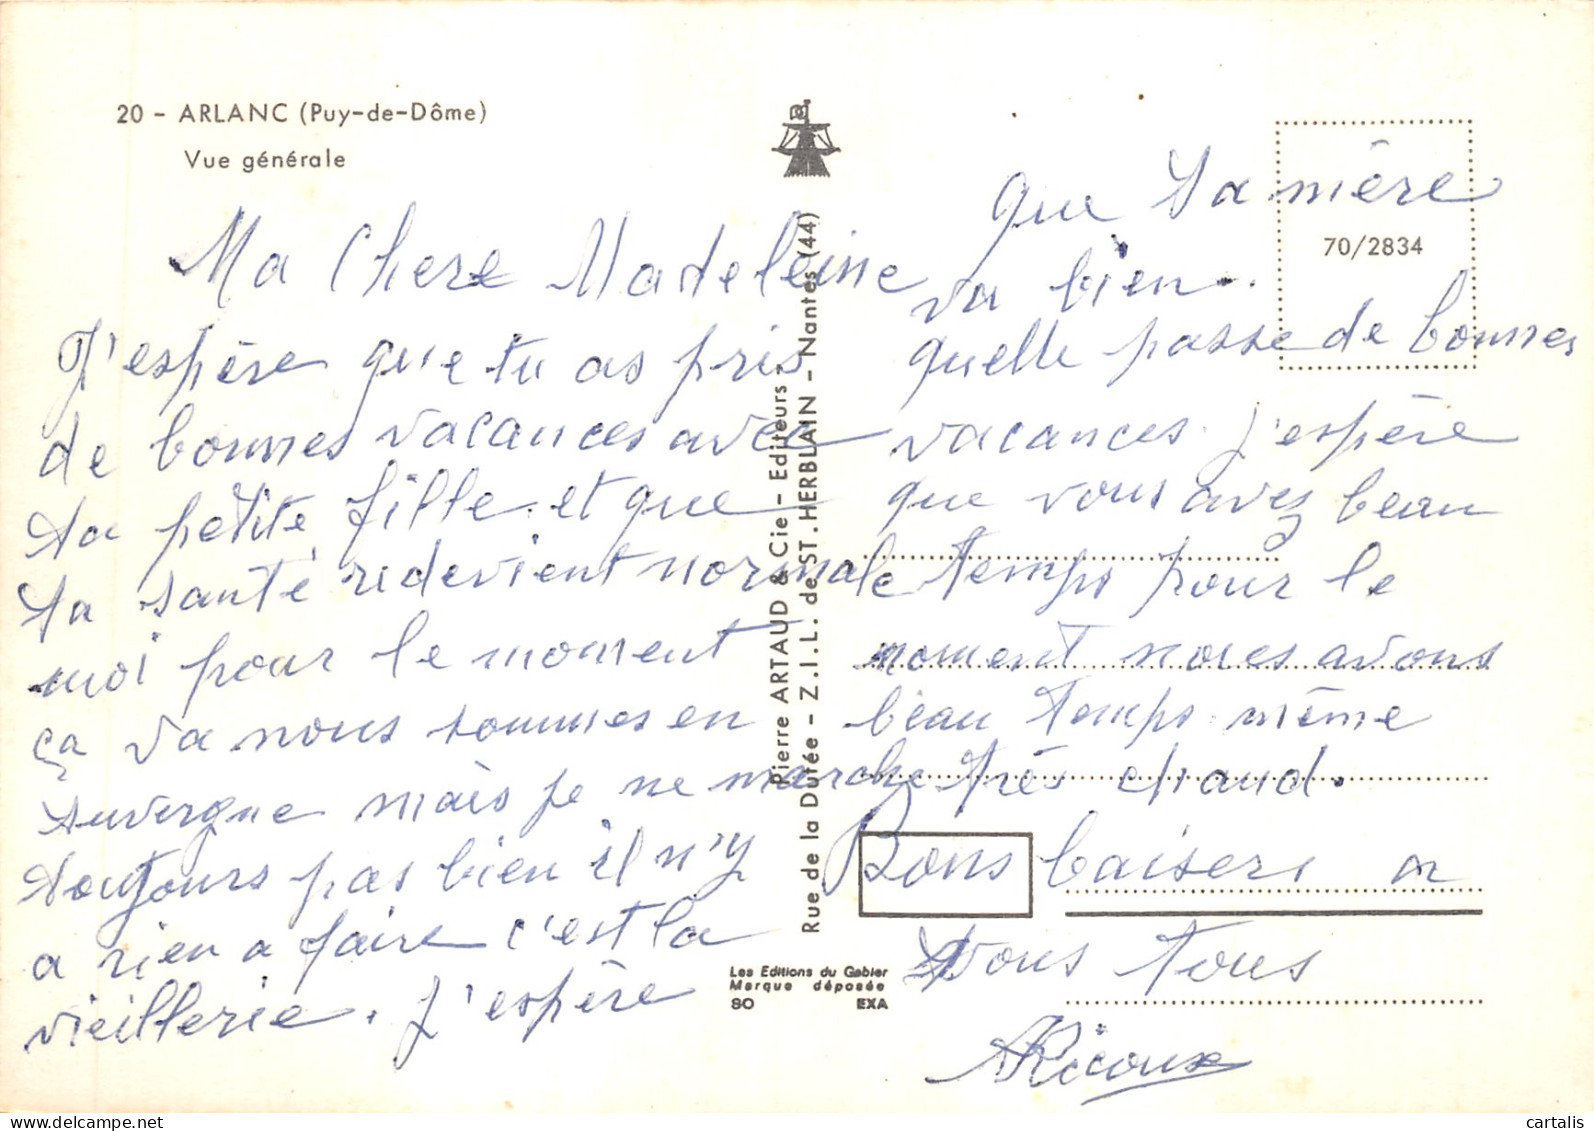 20 - ARLANC (Puy-de-Dôme)
Vue générale
Ma Chere Madeleine
J'espère que tu as pris
de bonnes vacances avec
ta petite fille. et que
ta santé redevient normale
moi pour le moment
ça va nous sommes en
Auvergne mais je ne marche
toujours pas bien il n'y
a rien a faire c'est la
vieillerie. J'espère
que ta mère
va bien.
quelle passe de bonnes
vacances. j'espère
que vous avez beau
temps pour le
moment nous avons
beau temps même
très chaud.
Bons baisers a
vous tous
ARicoux
70/2834
Pierre ARTAUD & Cie - Editeurs -
Rue de la Dutée - Z.I.L. de ST. HERBLAIN - Nantes (44)
Les Editions du Gabier
Marque déposée
80 EXA
cartalis
delcampe.net